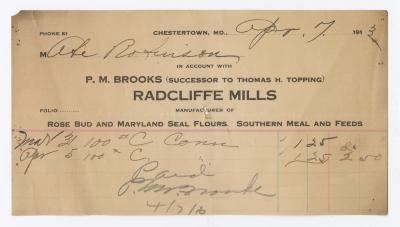 PHONE 81
CHESTERTOWN, MD., Apr. 7 191
M Abe Robinson
IN ACCOUNT WITH
P. M. BROOKS (SUCCESSOR TO THOMAS H. TOPPING)
RADCLIFFE MILLS
FOLIO
MANUFACTURER OF
ROSE BUD AND MARYLAND SEAL FLOURS. SOUTHERN MEAL AND FEEDS
Mar 31 100 # C. Corn 1 25
Apr 5 100 # C. 1 25 2 50
Paid
P. M. Brooks
4/7/